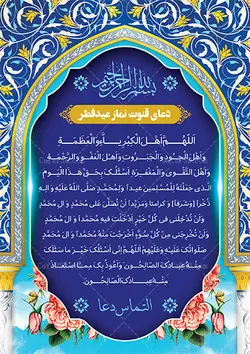 بسم الله الرحمن الرحیم
دعای قنوت نماز عیدفطر
اَللّهُمَّ اَهْلَ الْکِبْرِیاَّءِ وَالْعَظَمَةِ
وَاَهْلَ الْجُودِ وَالْجَبَرُوتِ وَاَهْلَ الْعَفْوِ وَالرَّحْمَةِ
وَاَهْلَ التَّقْوى وَالْمَغْفِرَةِ اَسْئَلُکَ بِحَقِّ هذَا الْیَوْمِ
الَّذى جَعَلْتَهُ لِلْمُسْلِمینَ عیداً وَلِمُحَمَّدٍ صَلَّى اللهُ عَلَیْهِ وَ الِهِ
ذُخْراً [وَشَرَفاً] وَ کَرامَتاً وَمَزیْداً اَنْ تُصَلِّىَ عَلى مُحَمَّدٍ وَ الِ مُحَمَّدٍ
وَاَنْ تُدْخِلَنى فى کُلِّ خَیْرٍ اَدْخَلْتَ فیهِ مُحَمَّداً وَ الَ مُحَمَّدٍ
وَاَنْ تُخْرِجَنى مِنْ کُلِّ سُوَّءٍ اَخْرَجْتَ مِنْهُ مُحَمَّداً وَ الَ مُحَمَّدٍ
صَلَواتُکَ عَلَیْهِ وَعَلَیْهِمْ اَللّهُمَّ اِنّى اَسْئَلُکَ خَیْرَ ما سَئَلَکَ
مِنْهُ عِبادُکَ الصّالِحُونَ وَاَعُوذُ بِکَ مِمَّا اسْتَعاذَ
مِنْهُ عِبادُکَ الصّالِحُونَ
التماس دعا